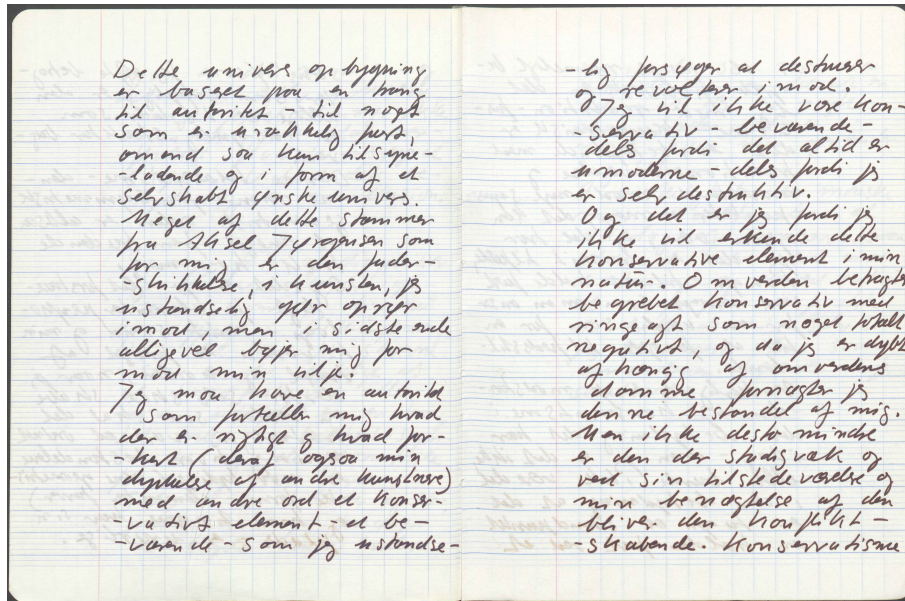 Dette univers opbygning
er baseret paa en trang
til autoritet - til noget
som er urokkelig fast,
omend saa kun tilsyne-
-ladende og i form af et
selvskabt ønske univers.
Meget af dette stammer
fra Aksel Jørgensen som
for mig er den fader-
-skikkelse, i kunsten, jeg
ustandselig gør oprør
imod, men i sidste ende
alligevel bøjer mig for
mod min vilje.
Jeg maa have en autoritet
som fortæller mig hvad
der er rigtigt og hvad for-
-kert (deraf ogsaa min
dyrkelse af andre kunstnere)
med andre ord et konser-
-vativt element - et be-
-varende - som jeg ustandse-
-lig forsøger at destruere
og revolterer imod.
Jeg vil ikke være kon-
-servativ - bevarende -
dels fordi det altid er
umoderne - dels fordi jeg
er selvdestruktiv.
Og det er jeg fordi jeg
ikke vil erkende dette
konservative element i min
natur. Omverden betragter
begrebet konservativ med
ringeagt som noget totalt
negativt, og da jeg er dybt
afhængig af omverdens
domme fornægter jeg
denne bestandel af mig.
Men ikke desto mindre
er den der stadigvæk og
ved sin tilstedeværelse og
min benægtelse af den
bliver den konflikt-
-skabende. Konservatisme